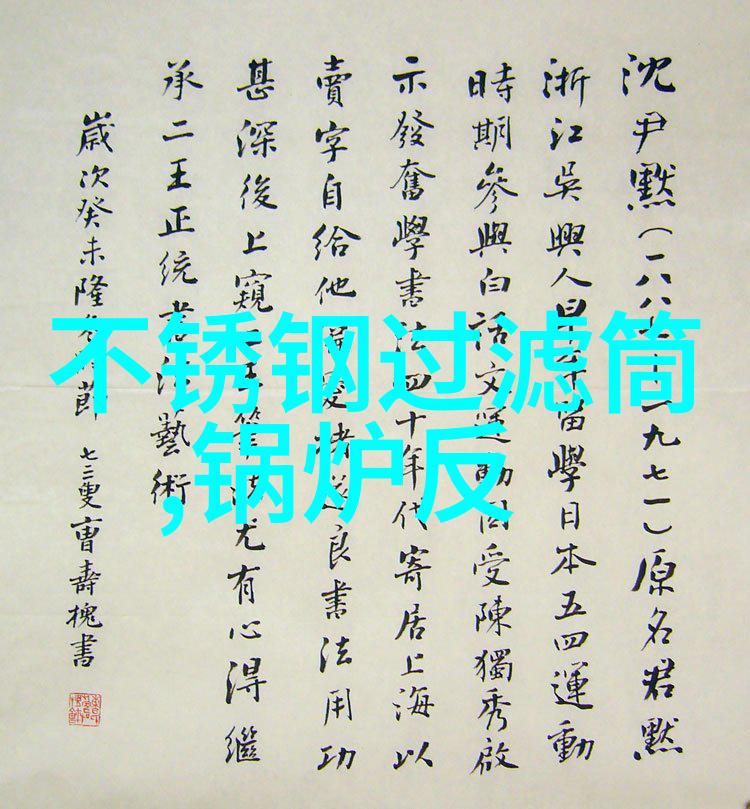 沈尹默(一八八一九七一)原名君默
浙江吳興人早年留學日本五四運動
時期參與白話文運動因受陳獨秀啟
示發奮學書法四十年代寄居上海以
賣字自給他褚遂良書法用功
甚深後上窺二王筆法尤有心得繼
承二王正統書法藝術
歲次癸未隆冬節 七三叟曹壽槐書
不锈钢过滤筒
,锅炉反